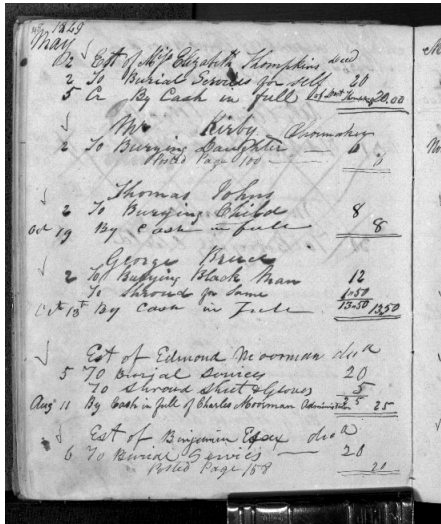 1849
May
Dr Est of Miss Elizabeth Thompkins decd
2 To Burial Services for self 20
5 Cr By Cash in full 20.00
Mr Kirby Shoemaker
2 To Burying Daughter
Posted Page 100
Thomas Johns
2 To Burying Child 8
Oct 19 By Cash in full 8
George Bruce
2 To Burying Black Man 12
To Shroud for Same 1-50
Oct 13th By Cash in full 13-50 13.50
Est of Edmond Moorman decd
5 To Burial Services 20
To Shroud Sheet & Gloves 5
Aug 11 By Cash in full of Charles Moorman Administrator 25 25
Est of Benjamin Essex decd
6 To Burial Services 20
Posted Page 158 20